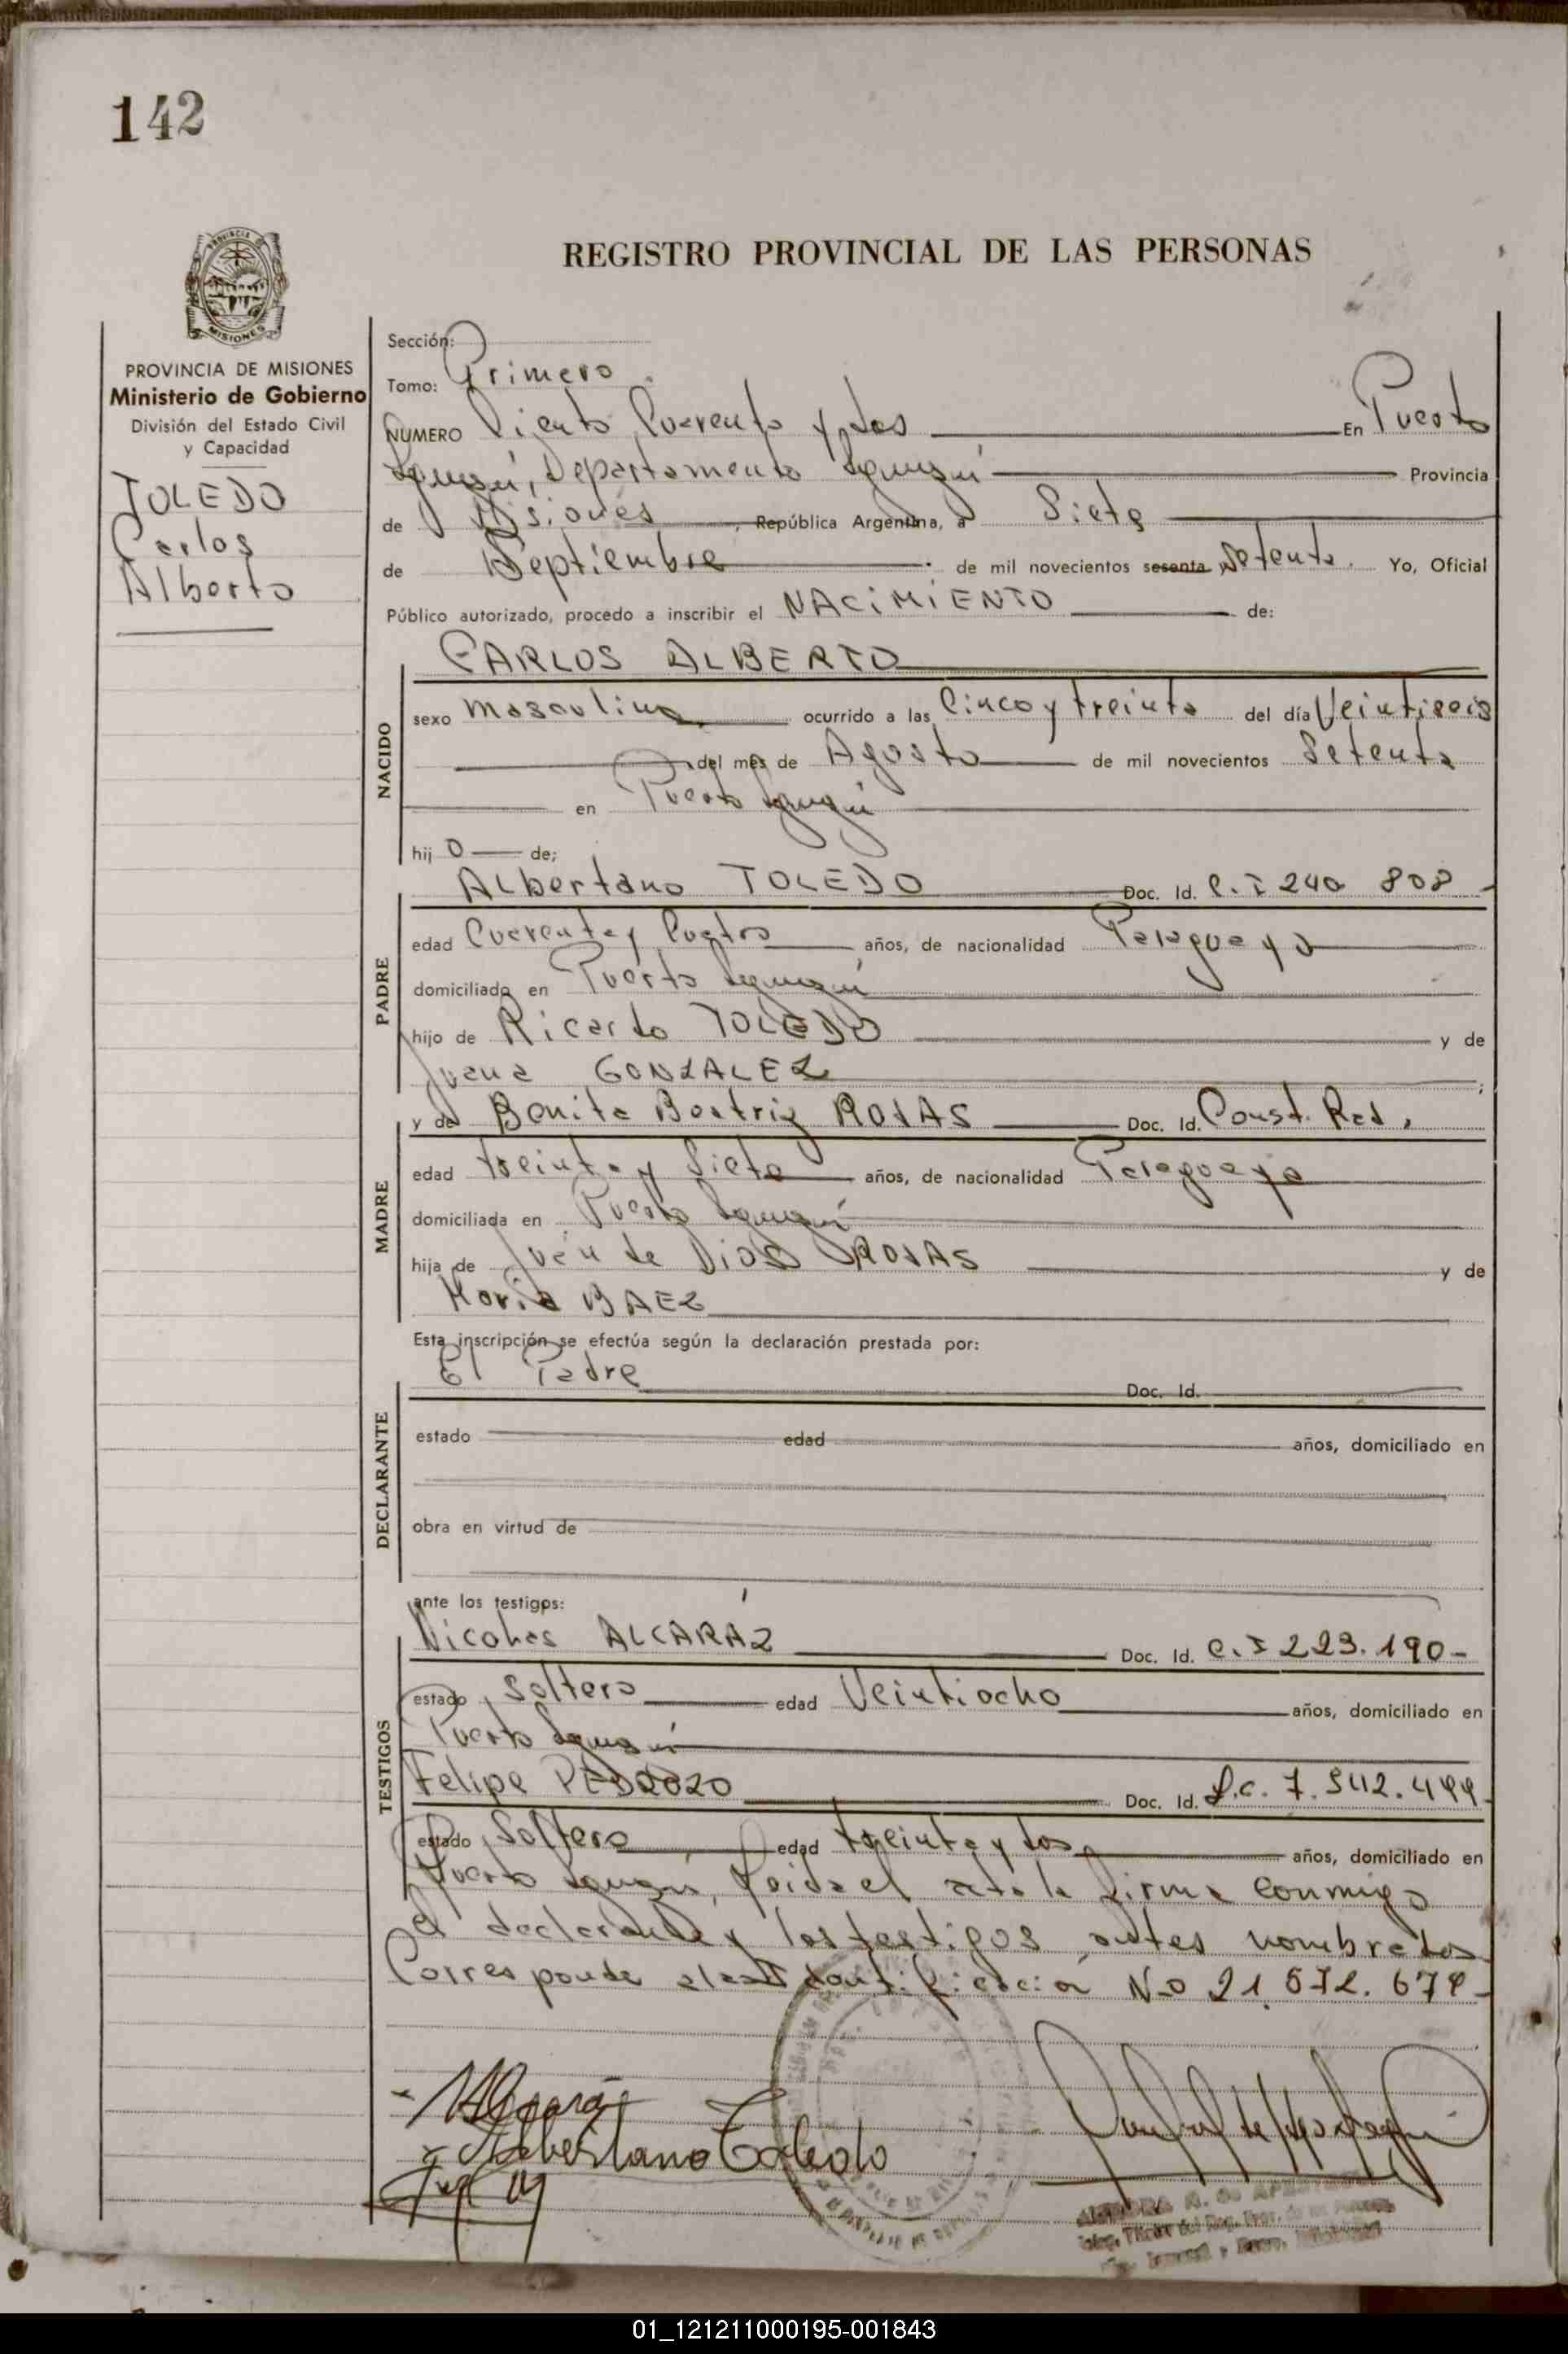 142
REGISTRO PROVINCIAL DE LAS PERSONAS
PROVINCIA DE MISIONES
Ministerio de Gobierno
División del Estado Civil
y Capacidad
TOLEDO
Carlos
Alberto
Sección:
Tomo: Primero.
NUMERO Ciento Cuarenta y dos En Puerto
Iguazú, Departamento Iguazú Provincia
de Misiones, República Argentina, a Siete
de Septiembre de mil novecientos sesenta Setenta. Yo, Oficial
Público autorizado, procedo a inscribir el NACIMIENTO de:
CARLOS ALBERTO
NACIDO
sexo masculino ocurrido a las Cinco y treinta del día Veintiseis
del mes de Agosto de mil novecientos Setenta
en Puerto Iguazú
hij o de;
PADRE
Albertano TOLEDO Doc. Id. C.I 240 808
edad Cuarenta y Cuatro años, de nacionalidad Paraguaya
domiciliado en Puerto Iguazú
hijo de Ricardo TOLEDO y de
Juana GONZALEZ;
MADRE
y de Benita Beatriz ROJAS Doc. Id. Const. Rad.
edad treinta y Siete años, de nacionalidad Paraguaya
domiciliada en Puerto Iguazú
hija de Juan de Dios ROJAS y de
Maria BAEZ
Esta inscripción se efectúa según la declaración prestada por:
DECLARANTE
El Padre Doc. Id.
estado edad años, domiciliado en
obra en virtud de
ante los testigos:
TESTIGOS
Nicolas ALCARÁZ Doc. Id. C.I 223.190-
estado Soltero edad Veintiocho años, domiciliado en
Puerto Iguazú
Felipe PEDROZO Doc. Id. L.C. 7.542.499-
estado Soltero edad treinta y dos años, domiciliado en
Puerto Iguazú, Leida el acta la firma conmigo
el declarante y los testigos antes nombrados
Corresponde Identificación No 21.572.679-
Albertano Toledo
01_121211000195-001843